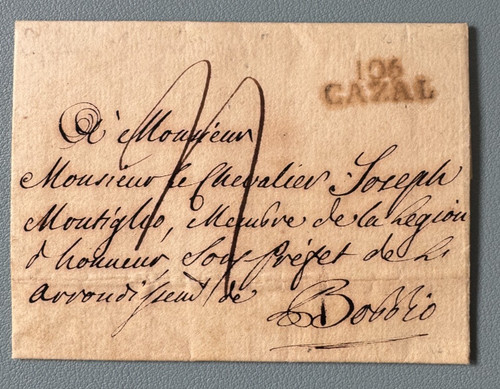 106
CAZAL
A Monsieur
Monsieur le Chevalier Joseph
Montiglio, Membre de la Legion
d honneur Sous Préfet de L
arrondissem̃t de
Bobbio